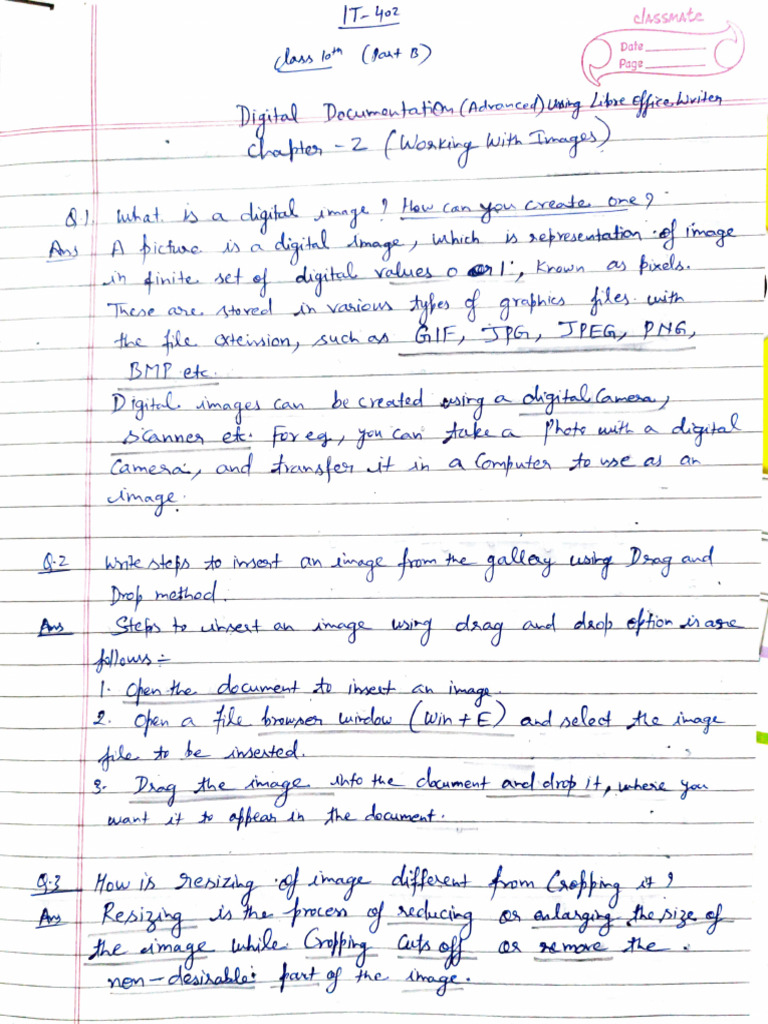 IT-402
classmate
Date
Page
Class 10th (Part B)
Digital Documentation (Advanced) using Libre Office Writer
Chapter - 2 (Working With Images)
Q1. What is a digital image? How can you create one?
Ans A picture is a digital image, which is representation of image
in finite set of digital values 0 or 1, Known as pixels.
These are stored in various types of graphics files with
the file extension, such as GIF, JPG, JPEG, PNG,
BMP etc.
Digital images can be created using a digital Camera,
scanner etc. For eg, you can take a Photo with a digital
Camera, and transfer it in a Computer to use as an
image.
Q.2 Write steps to insert an image from the gallery using Drag and
Drop method.
Ans Steps to insert an image using drag and drop option is are
follows :-
1. Open the document to insert an image.
2. Open a file browser window (Win + E) and select the image
file to be inserted.
3. Drag the image into the document and drop it, where you
want it to appear in the document.
Q.3 How is resizing of image different from Cropping it?
Ans Resizing is the process of reducing or enlarging the size of
the image while Cropping cuts off or remove the
non-desirable part of the image.